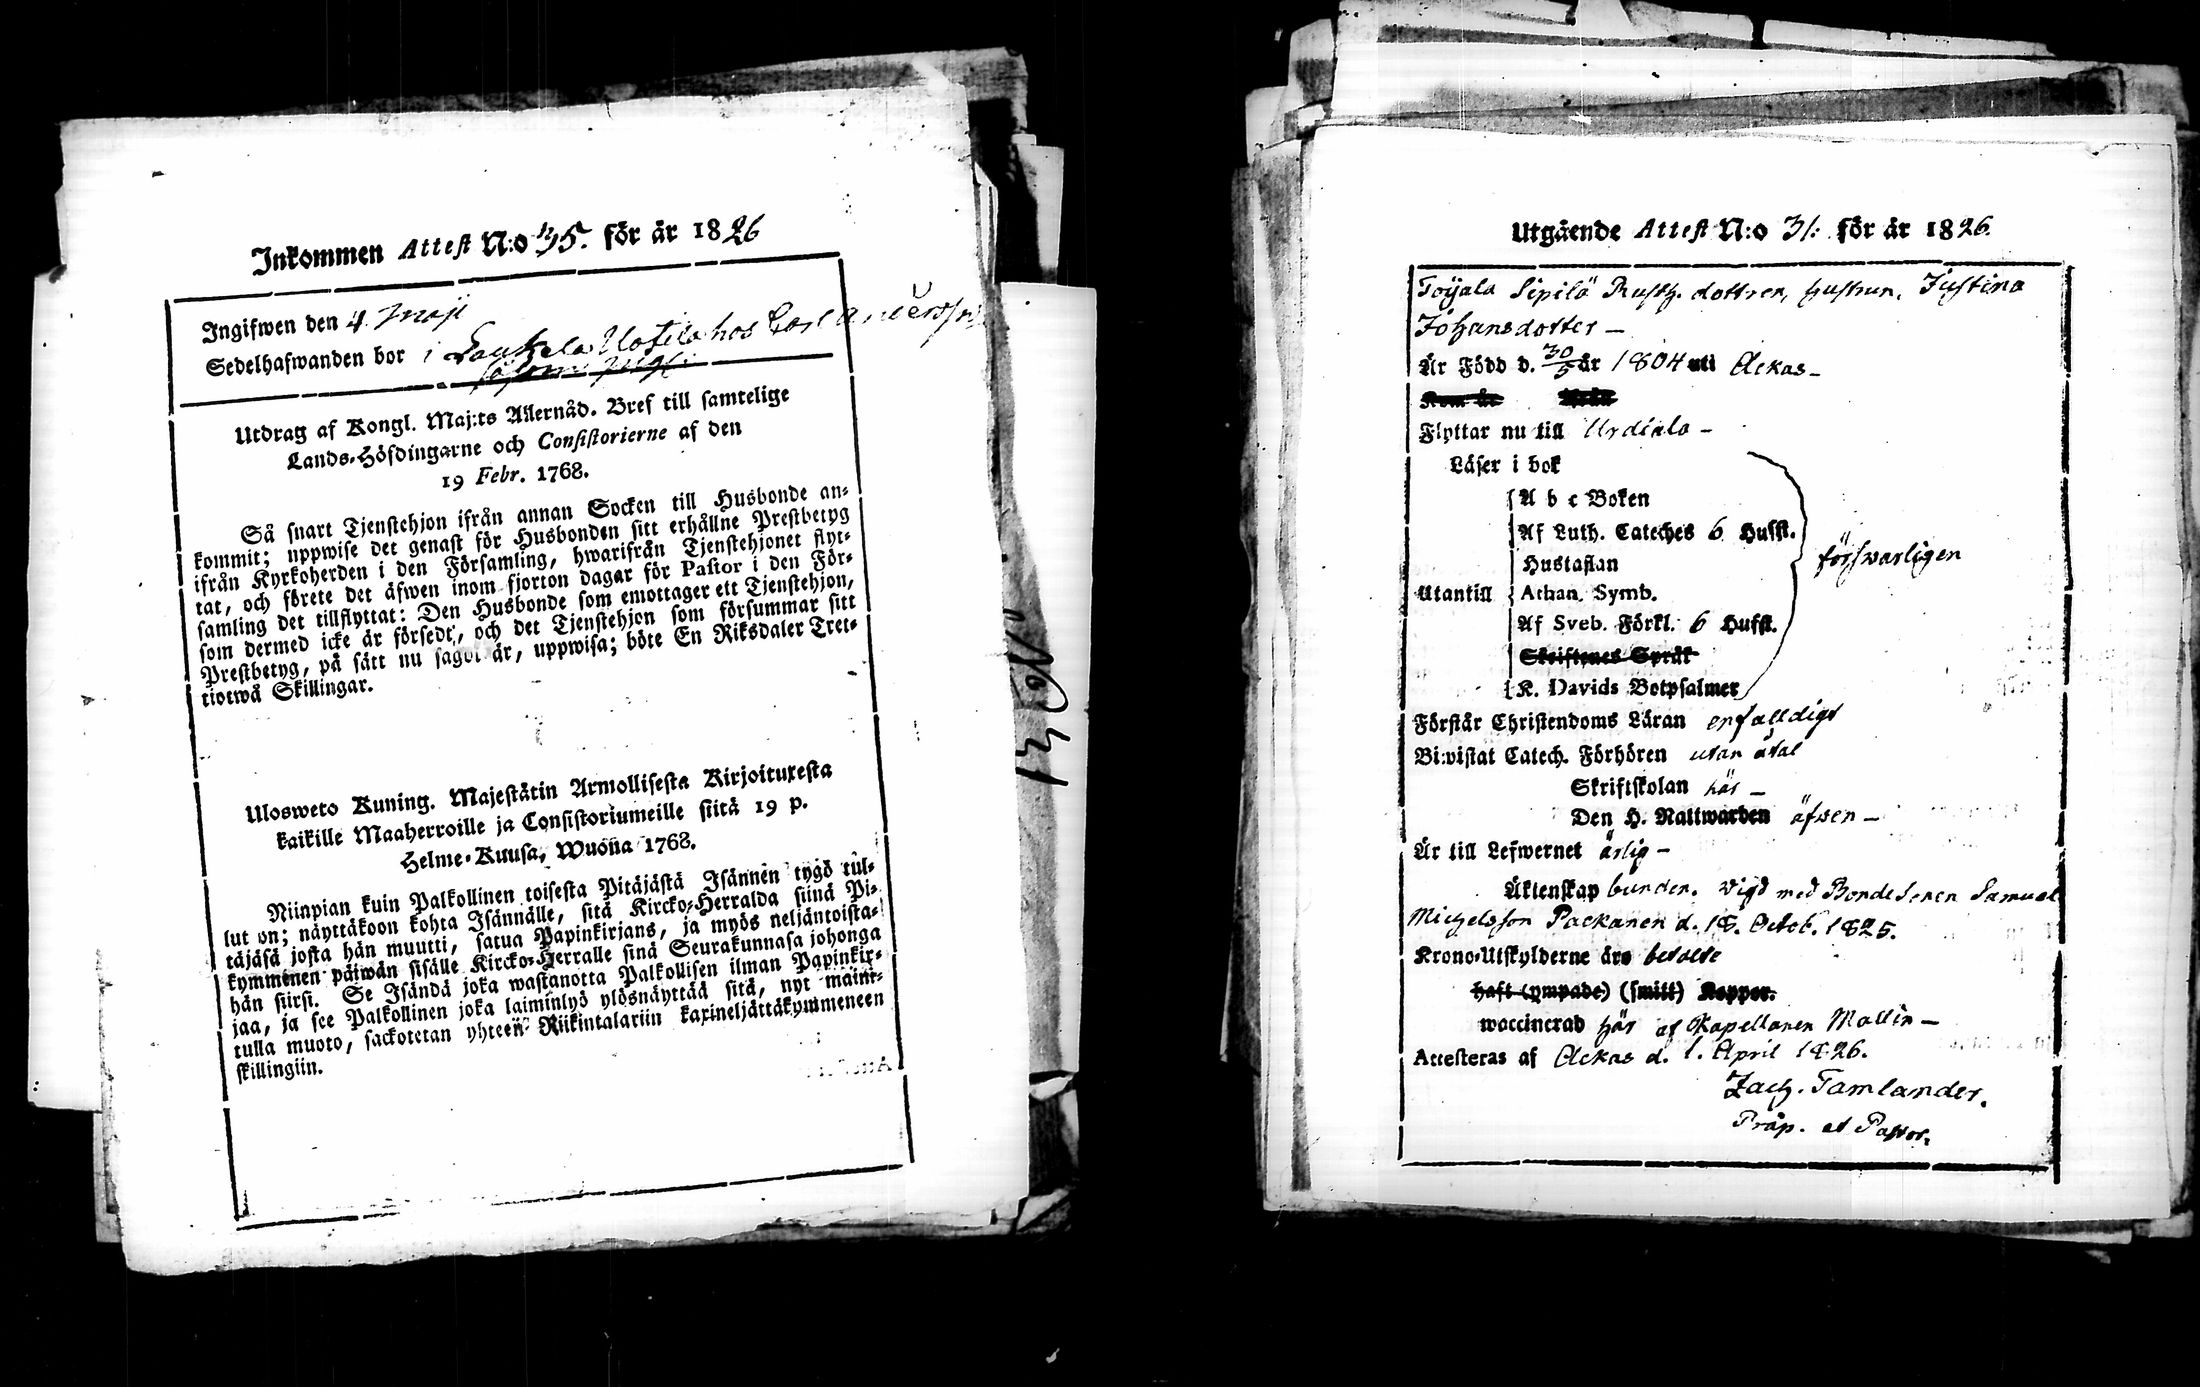 Inkommen Attest N:o 35. för år 1826
Ingifwen den 4 Maji
Sedelhafwanden bor i Lautzela Uotila hos Carl Andersson
såsom pig:
Utdrag af Kongl. Maj:ts Allernåd. Bref till samtelige
Lands-Höfdingarne och Consistorierne af den
19 Febr. 1768.
Så snart Tjenstehjon ifrån annan Socken till Husbonde an-
kommit; uppwise det genast för Husbonden sitt erhållne Prestbetyg
ifrån Kyrkoherden i den Församling, hwarifrån Tjenstehjonet flyt-
tat, och förete det äfwen inom fjorton dagar för Pastor i den För-
samling det tillflyttat: Den Husbonde som emottager ett Tjenstehjon,
som dermed icke är försedt, och det Tjenstehjon som försummar sitt
Prestbetyg, på sätt nu sagdt är, uppwisa; böte En Riksdaler Tret-
tiotwå Skillingar.
Ulosweto Kuning. Majestätin Armollisesta Kirjoituxesta
kaikille Maaherroille ja Consistoriumeille siitä 19 p.
Helme-Kuusa, Wuona 1768.
Niinpian kuin Palkollinen toisesta Pitäjästä Isännen tygö tul-
lut on; näyttäkoon kohta Isännälle, sitä Kircko-Herralda siinä Pi-
täjäsä josta hän muutti, satua Papinkirjans, ja myös neljäntoista-
kymmenen päiwän sisälle Kircko-Herralle sinä Seurakunnasa johonga
hän siirsi. Se Isändä joka wastanotta Palkollisen ilman Papinkir-
jaa, ja see Palkollinen joka laiminlyö ylösnäyttää sitä, nyt mainit-
tulla muoto, sackotetan yhteen Riikintalariin kaxineljättäkymmeneen
skillingiin.
Utgående Attest N:o 31: för år 1826.
Toijala Sipilä Rusth. dottren, hustrun, Justina
Johansdotter –
Är Född d. 30/5 år 1804 uti Ackas –
Kom år ifrån
Flyttar nu till Urdiala –
Läser i bok
A b c Boken
Af Luth. Cateches 6 Hufst.
Hustaflan
Utantill Athan. Symb. förswarligen
Af Sveb. Förkl. 6 Hufst.
Skriftenes Språk
K. Davids Botpsalmer
Förstår Christendoms Läran enfalldigt
Bi:vistat Catech. Förhören utan åtal
Skriftskolan här –
Den H. Nattwarden äfwen –
Är till Lefwernet ärlig –
Äktenskap bunden. Vigd med Bonde Sonen Samuel
Michelsson Packanen d. 18. Octob. 1825.
Krono-Utskylderne äro betalte
haft (ympade) (smitt) Koppor.
waccinerad här af Kapellanen Mallin –
Attesteras af Ackas d. 1. April 1826.
Zach. Tamlander.
Präp. et Pastor.